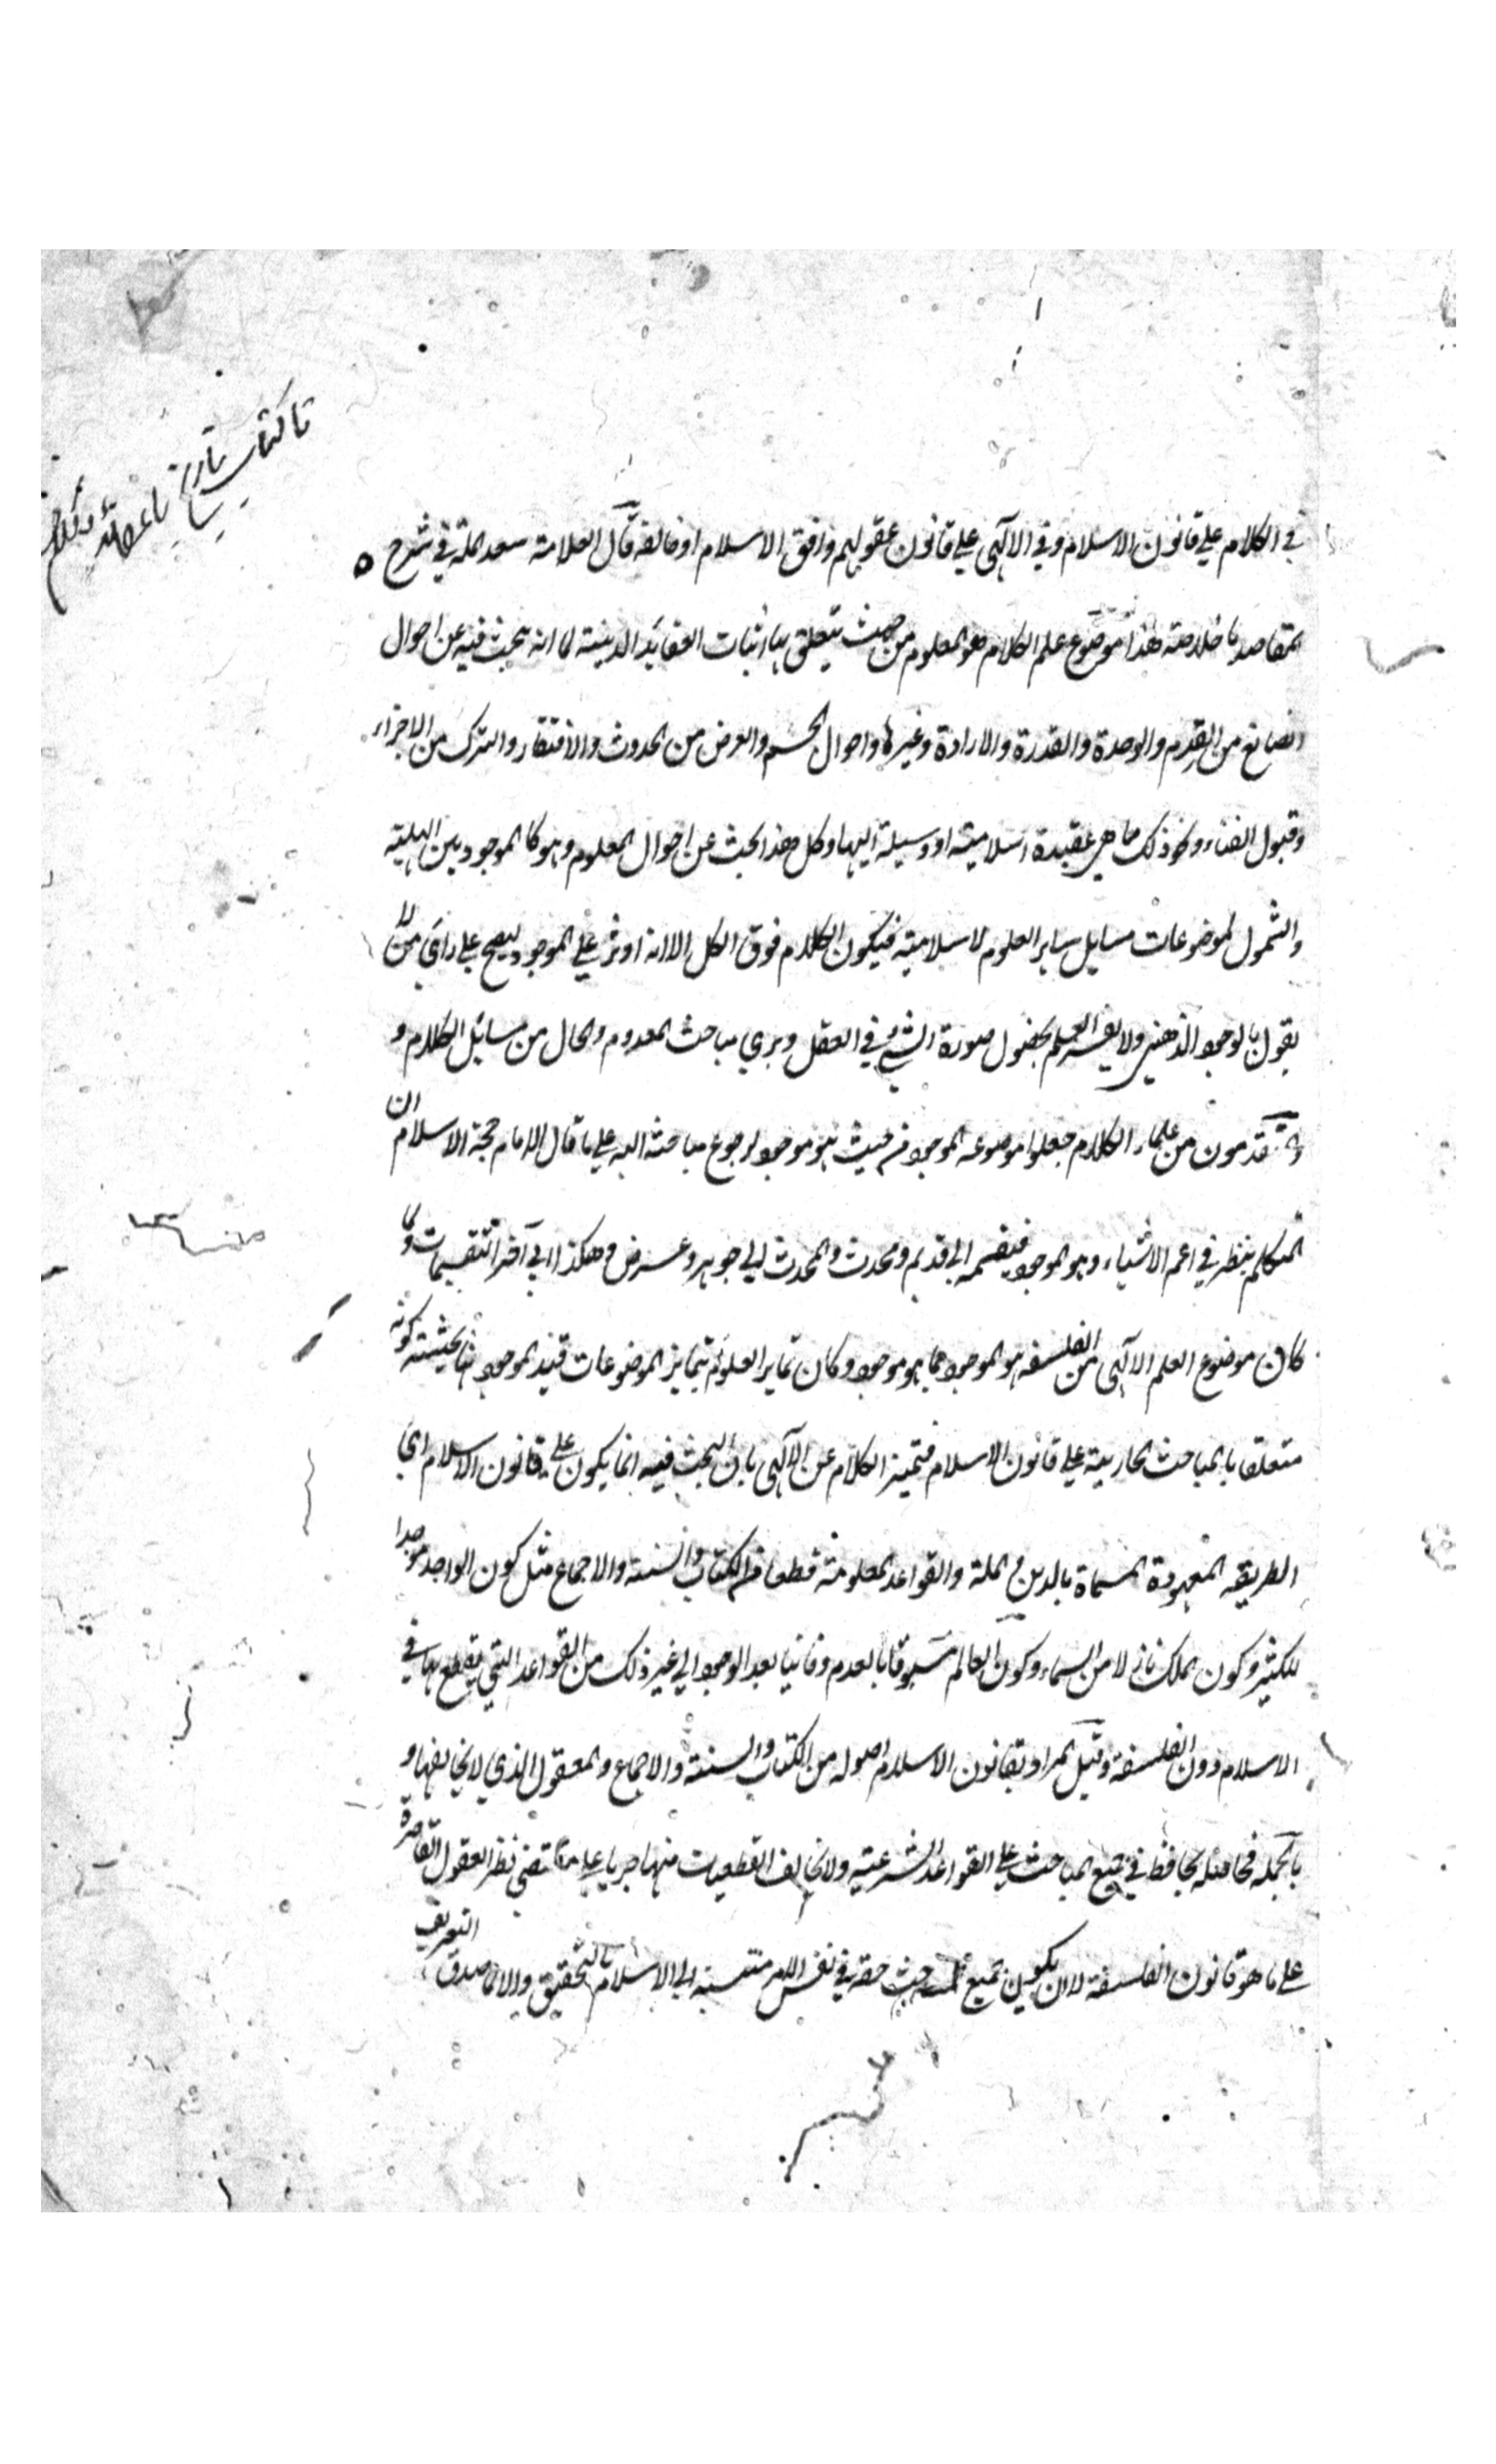 في الكلام علي قانون الاسلام وفي الالهي علي قانون عقولهم وافق الاسلام او خالفه قال العلامة سعد المله في شرح
المقاصد ما خلاصته هذا موضوع علم الكلام هو المعلوم من حيث يتعلق به اثبات العقايد الدينية لما انه يبحث فيه عن احوال
الصانع من القدم والوحدة والقدرة والارادة وغيرها واحوال الجسم والعرض من الحدوث والافتقار والتركب من الاجزاء
وقبول الفناء ونحو ذلك مما هي عقيدة اسلامية او وسيلة اليها وكل هذا بحث عن احوال المعلوم وهو كالموجود بين الهلية
والشمول لموضوعات مسايل ساير العلوم الاسلامية فيكون الكلام فوق الكل الا انه اوثر علي الموجود ليصح علي راي من لا
يقول بالوجود الذهني ولا يفسر العلم بحصول صورة الشيء في العقل ويري مباحث المعدوم والحال من مسائل الكلام و
المتقدمون من علماء الكلام جعلوا موضوعه الموجود من حيث هو موجود لرجوع مباحثه اليه علي ما قال الامام حجة الاسلام ان
المتكلم ينظر في اعم الاشياء وهو الموجود فيقسمه الي قديم ومحدث والمحدث الي جوهر وعرض وهكذا الي آخر التقسيمات ولما
كان موضوع العلم الالهي من الفلسفه هو الموجود بما هو موجود وكان تمايز العلوم بتمايز الموضوعات قيد الموجود ههنا بحيثية كونه
متعلقا بالمباحث الجارية علي قانون الاسلام فتميز الكلام عن الالهي بان البحث فيه انما يكون علي قانون الاسلام اي
الطريقه المعهودة المسماة بالدين والملة والقواعد المعلومة قطعا من الكتاب والسنة والاجماع مثل كون الواحد موجدا
للكثير وكون الملك نازلا من السماء وكون العالم مسبوقا بالعدم وفانيا بعد الوجود الي غير ذلك من القواعد التي يقطع بها في
الاسلام دون الفلسفة وقيل المراد بقانون الاسلام اصوله من الكتاب والسنة والاجماع والمعقول الذي لا يخالفها و
بالجمله فحاصله يحافظ في جميع المباحث علي القواعد الشرعية ولا يخالف القطعيات منها جريا علي مقتضي نظر العقول القاصرة
علي ما هو قانون الفلسفة لا ان يكون جميع المباحث حقه في نفس الامر منتسبة الي الاسلام بالتحقيق والا لما صدق التعريف